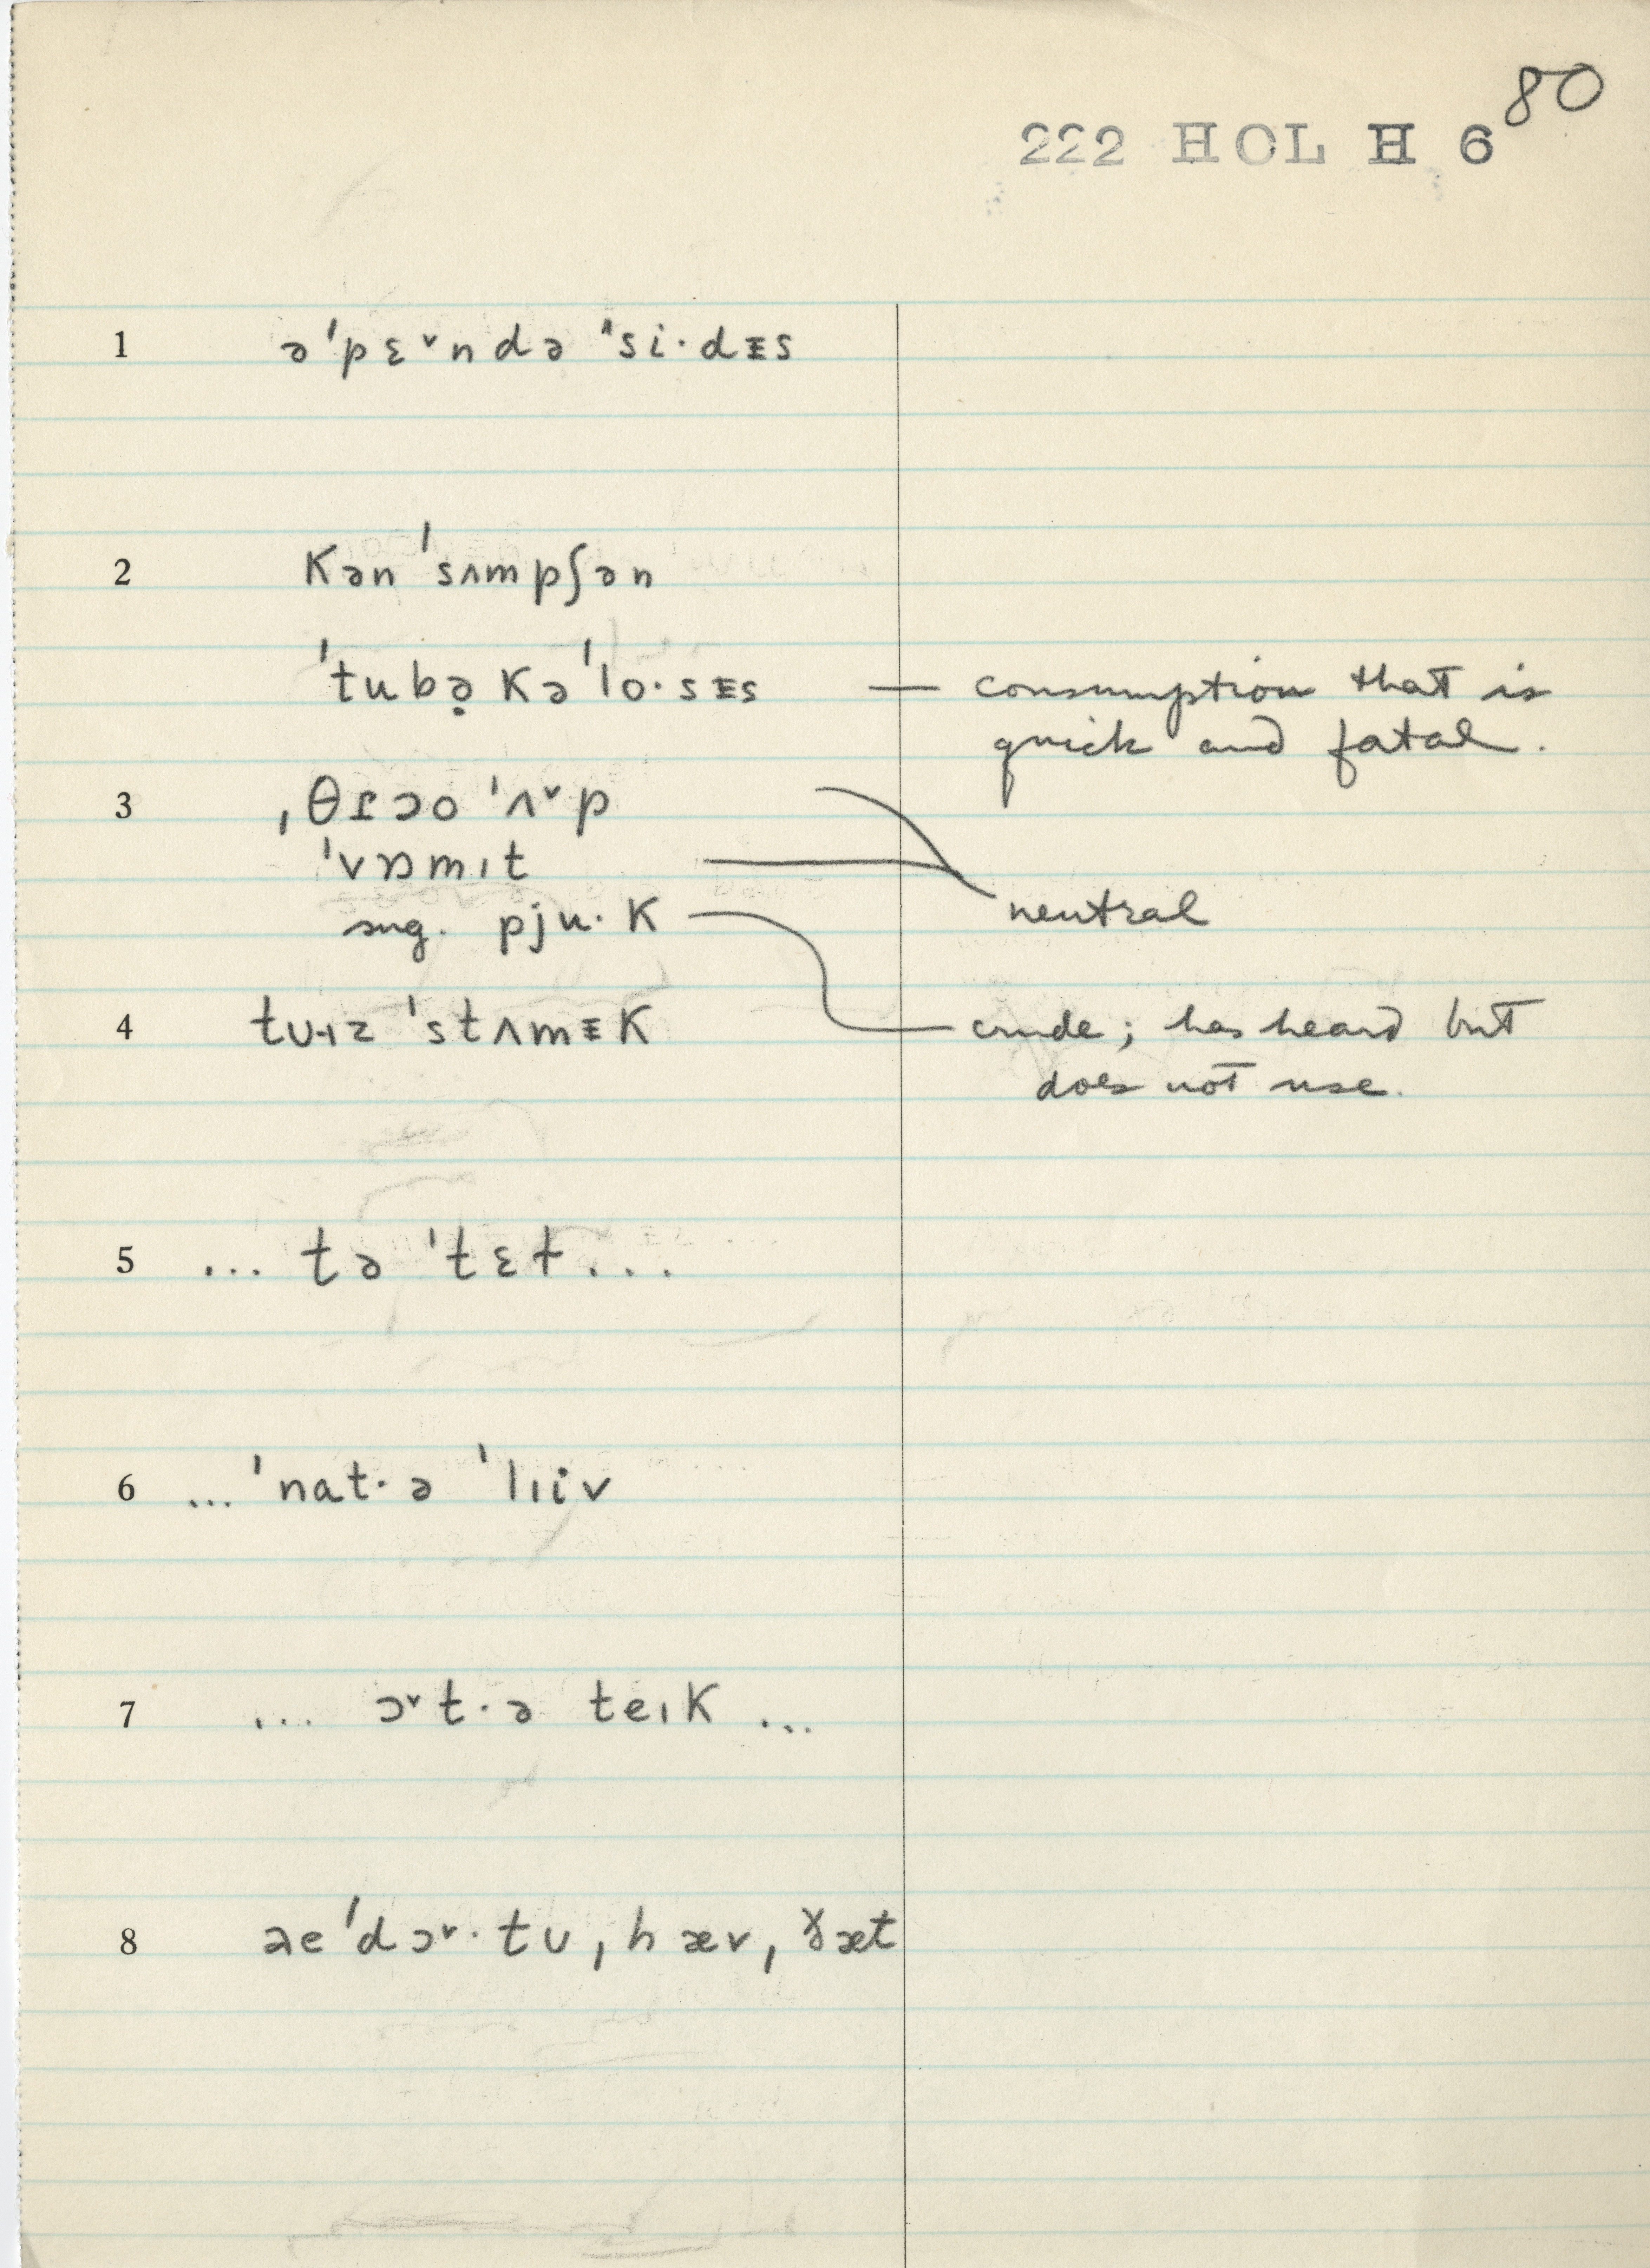 80
222 HOL H 6
1 ə'pɛ˅ndə ˈsi·dᵻs
2 Kən 'sʌmpʃən
'tubə̣Kə'lo·sᵻs — consumption that is
quick and fatal.
3 ˌθɪɔo 'ʌ˅p
'vɒmıt
neutral
sug. pju·K
4 tɷɹz 'stʌmᵻK crude; has heard but
does not use.
5 ... tə 'tɛt...
6 ... 'nat·ə 'lıiv
7 ... ɔ˅t·ə teıK ...
8 ae'dɔ˅·tɷ, hæv, ɣæt